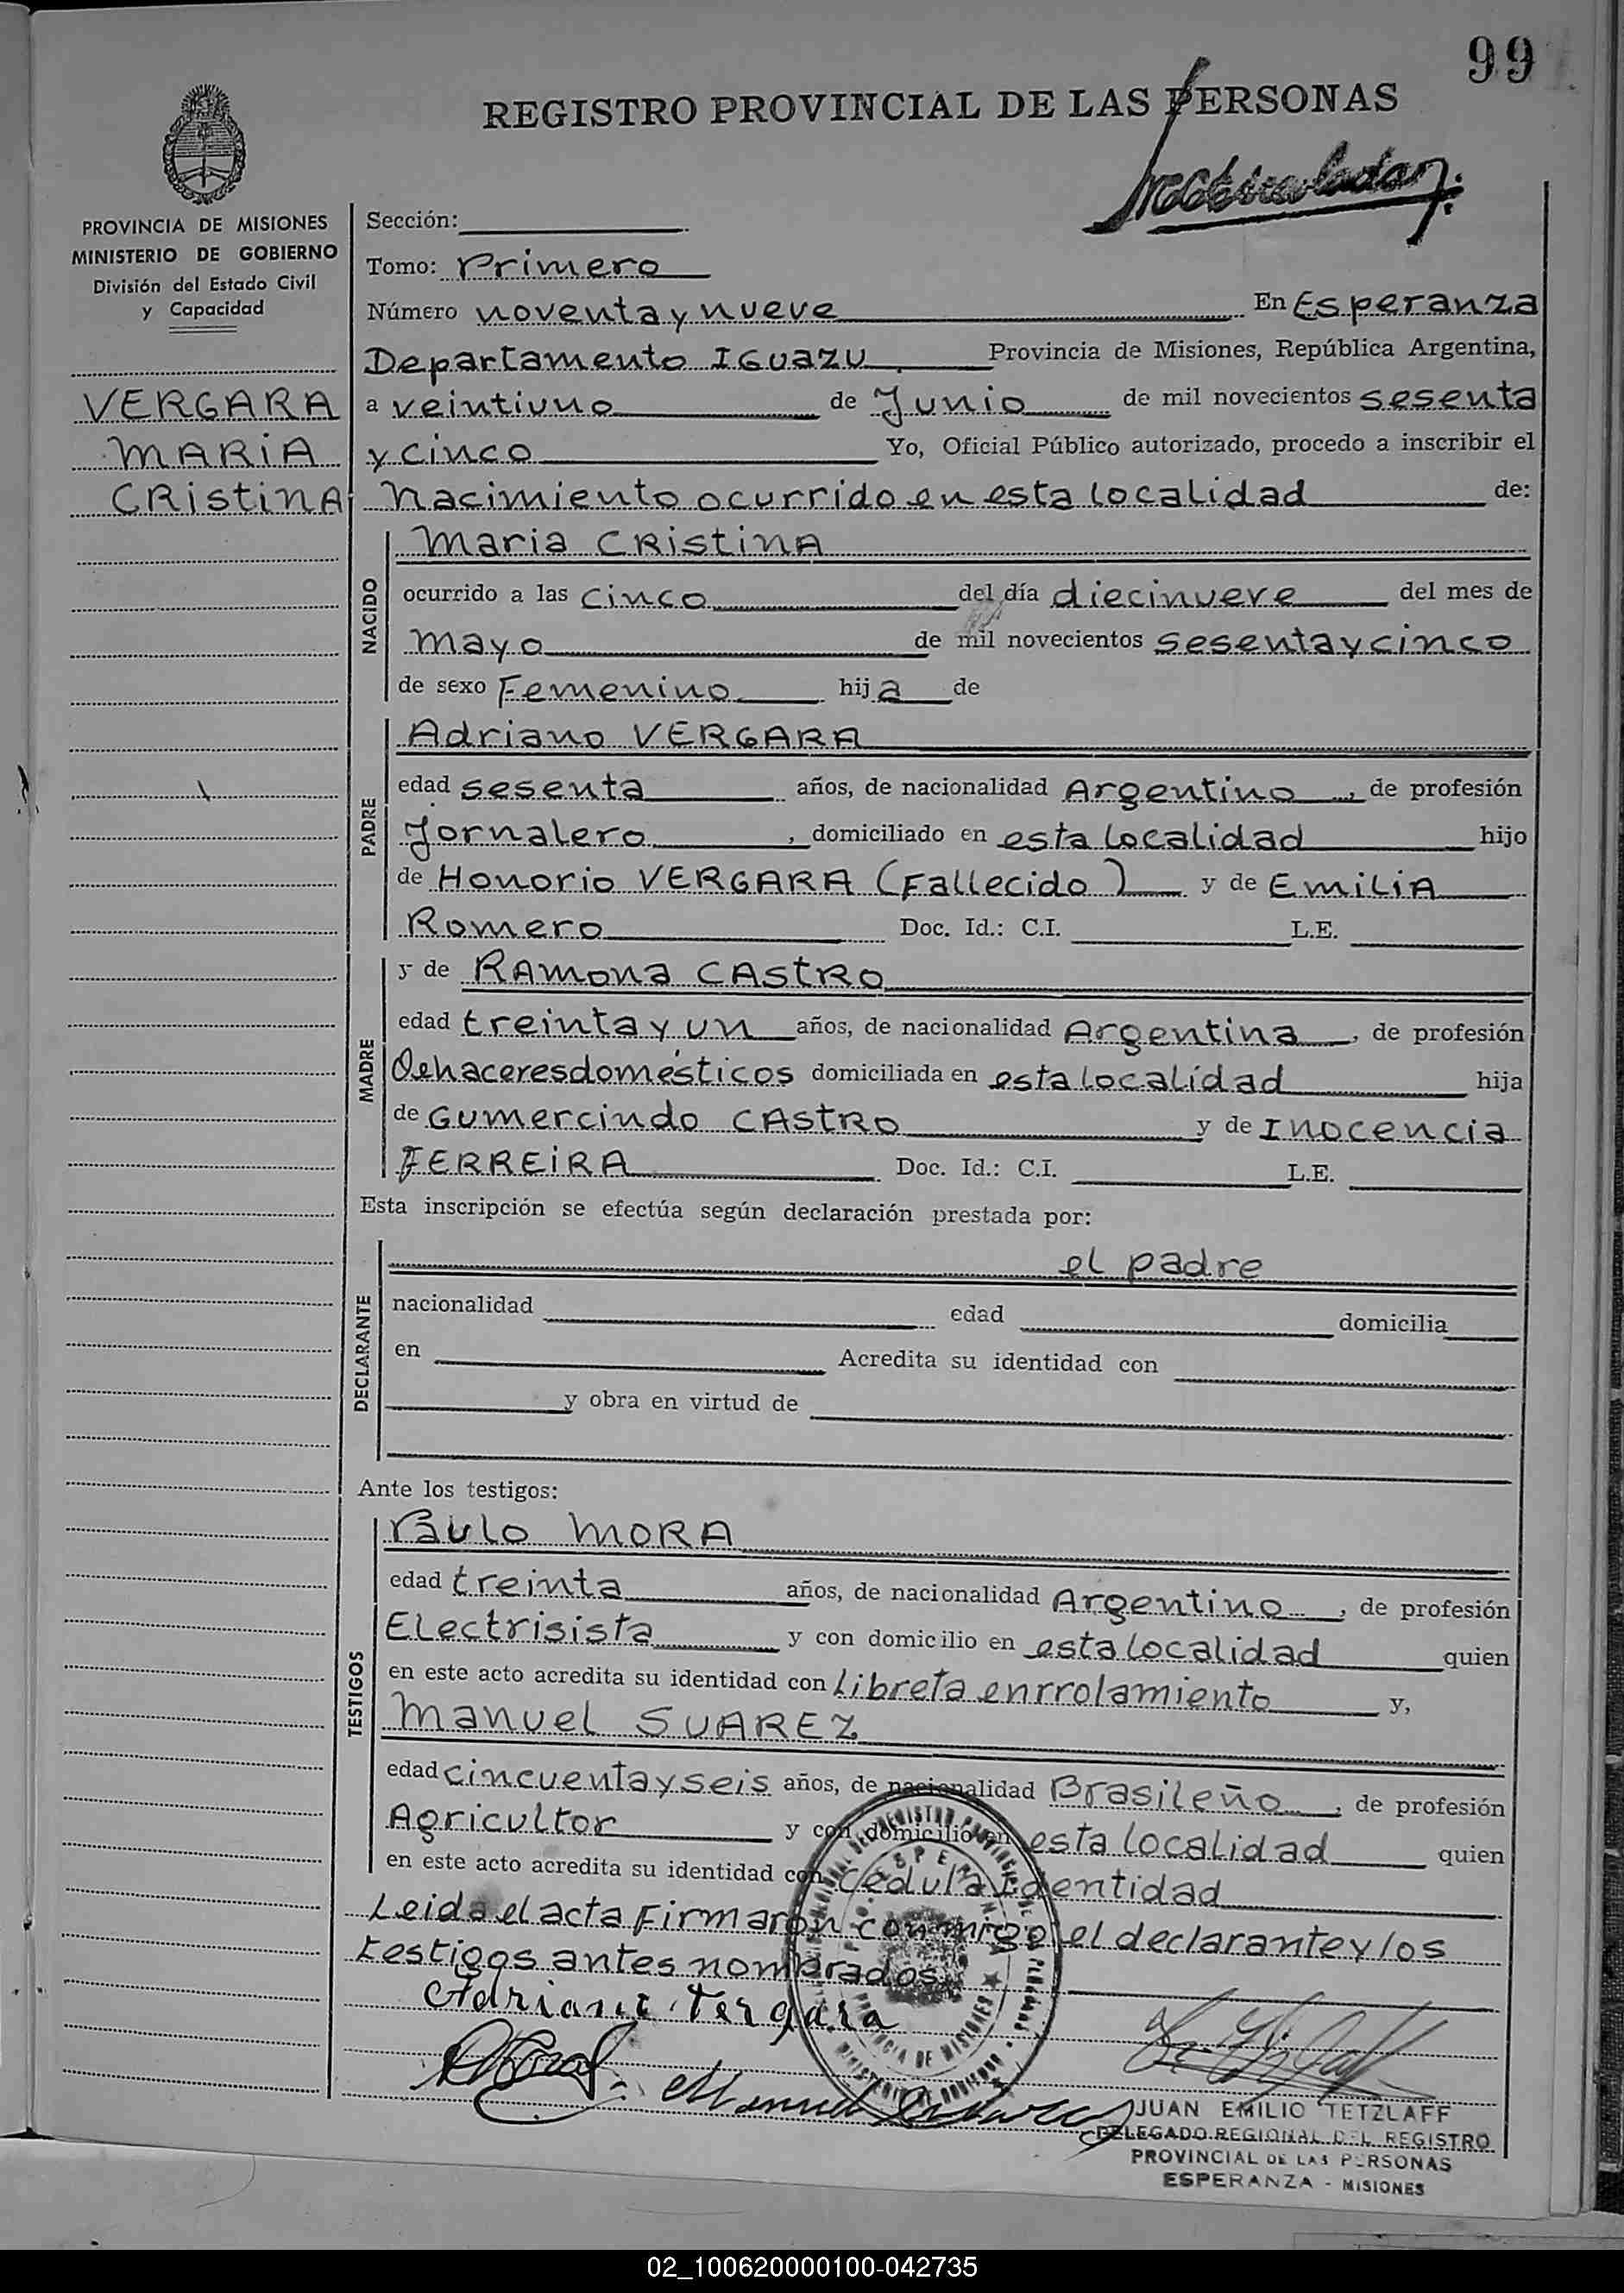 99
REGISTRO PROVINCIAL DE LAS PERSONAS
PROVINCIA DE MISIONES
MINISTERIO DE GOBIERNO
División del Estado Civil
y Capacidad
VERGARA
MARIA
CRistinA
Sección:
Tomo: Primero
Número noventa y nueve En Esperanza
Departamento IGUAZU Provincia de Misiones, República Argentina,
a veintiuno de Junio de mil novecientos sesenta
y cinco Yo, Oficial Público autorizado, procedo a inscribir el
nacimiento ocurrido en esta localidad de:
NACIDO
Maria CRistinA
ocurrido a las cinco del día diecinueve del mes de
mayo de mil novecientos sesenta y cinco
de sexo Femenino hija de
PADRE
Adriano VERGARA
edad sesenta años, de nacionalidad Argentino, de profesión
Jornalero, domiciliado en esta localidad hijo
de Honorio VERGARA (Fallecido) y de EmiliA
Romero Doc. Id.: C.I. L.E.
MADRE
y de RAmona CAstRO
edad treinta y un años, de nacionalidad Argentina, de profesión
Qehaceres domésticos domiciliada en esta localidad hija
de Gumercindo CAstRO y de Inocencia
FERREiRA Doc. Id.: C.I. L.E.
Esta inscripción se efectúa según declaración prestada por:
DECLARANTE
el padre
nacionalidad edad domicilia
en Acredita su identidad con
y obra en virtud de
Ante los testigos:
TESTIGOS
Paulo MORA
edad treinta años, de nacionalidad Argentino, de profesión
Electrisista y con domicilio en esta localidad quien
en este acto acredita su identidad con Libreta enrrolamiento y,
Manuel SUAREZ
edad cincuenta y seis años, de nacionalidad Brasileño, de profesión
Agricultor y con domicilio en esta localidad quien
en este acto acredita su identidad con cedula identidad
Leida el acta Firmaron conmigo el declarante y los
testigos antes nombrados.
Adriano Vergara
Manuel Suarez
JUAN EMILIO TETZLAFF
DELEGADO REGIONAL DEL REGISTRO
PROVINCIAL DE LAS PERSONAS
ESPERANZA - MISIONES
02_100620000100-042735